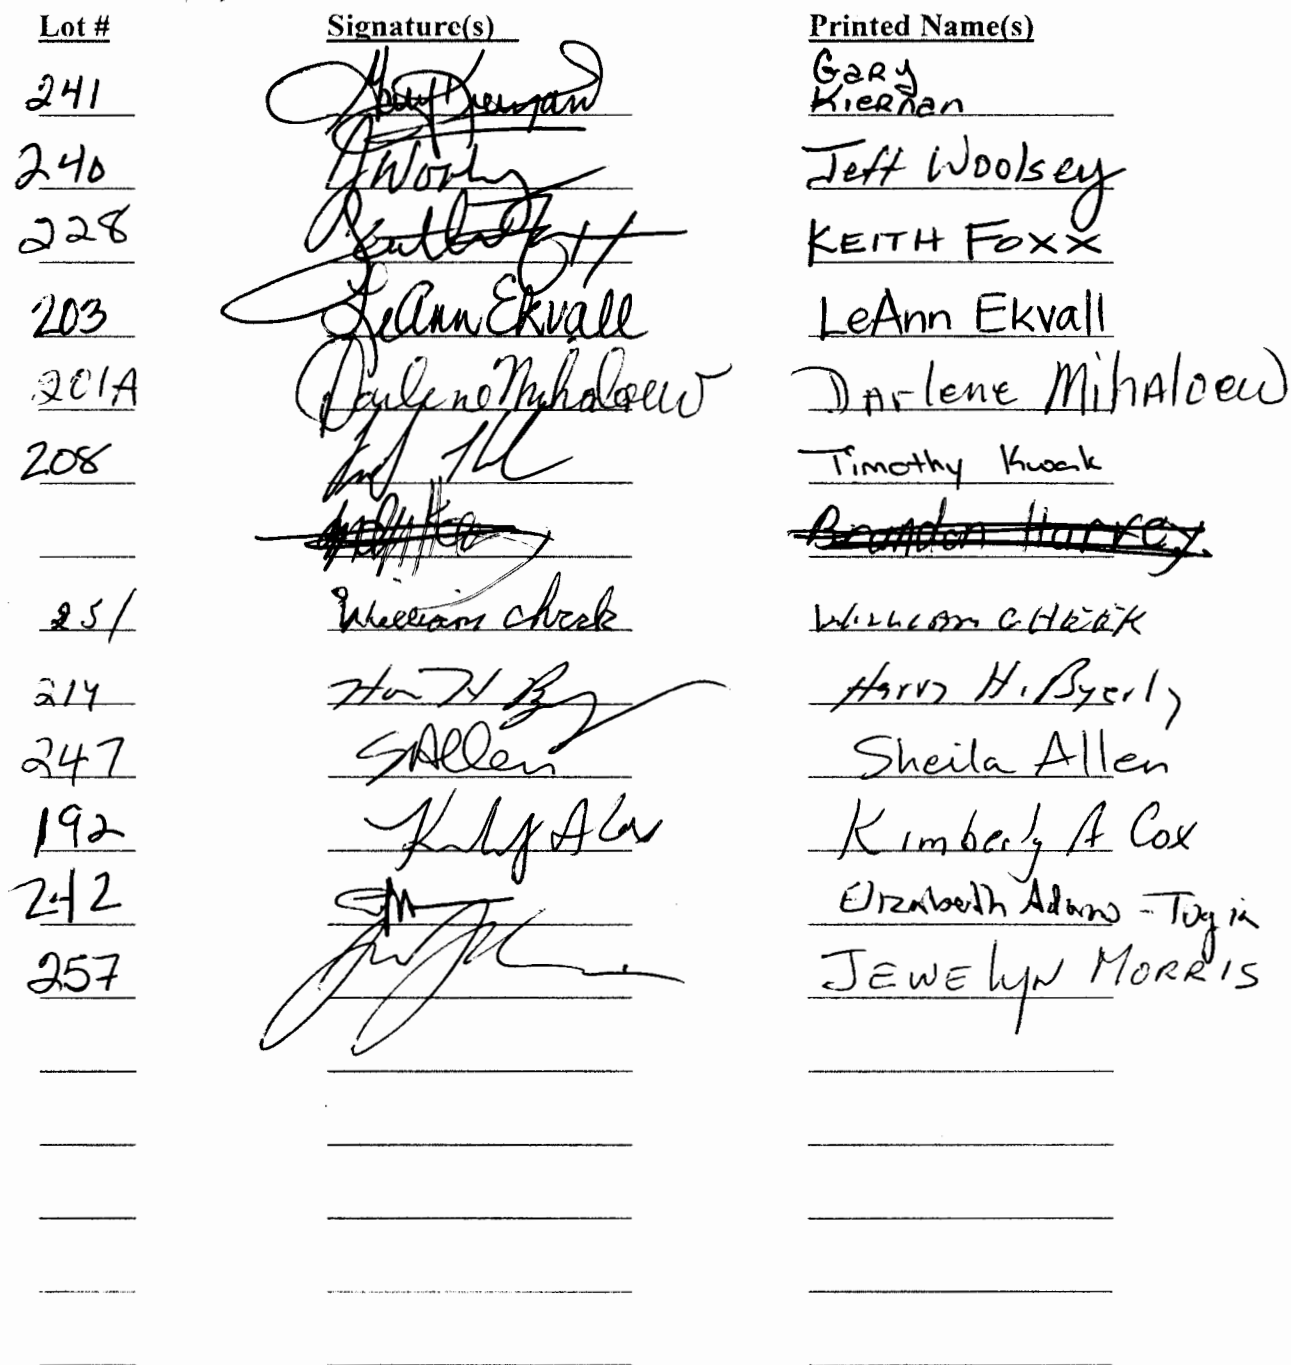 Lot # Signature(s) Printed Name(s)
241 Gary Kiernan Gary
Kiernan
240 JWoolsey Jeff Woolsey
228 Keith Foxx KEITH FOXX
203 LeAnn Ekvall LeAnn Ekvall
201A Darlene Mihaloew Darlene Mihaloew
208 Timothy Kwak
Brandon Harvey
251 William Cheek William CHEEK
214 Harry H. Byerly
247 SAllen Sheila Allen
192 Kimberly A Cox Kimberly A Cox
242 Elizabeth Adams-Tugia
257 JEWELYN MORRIS